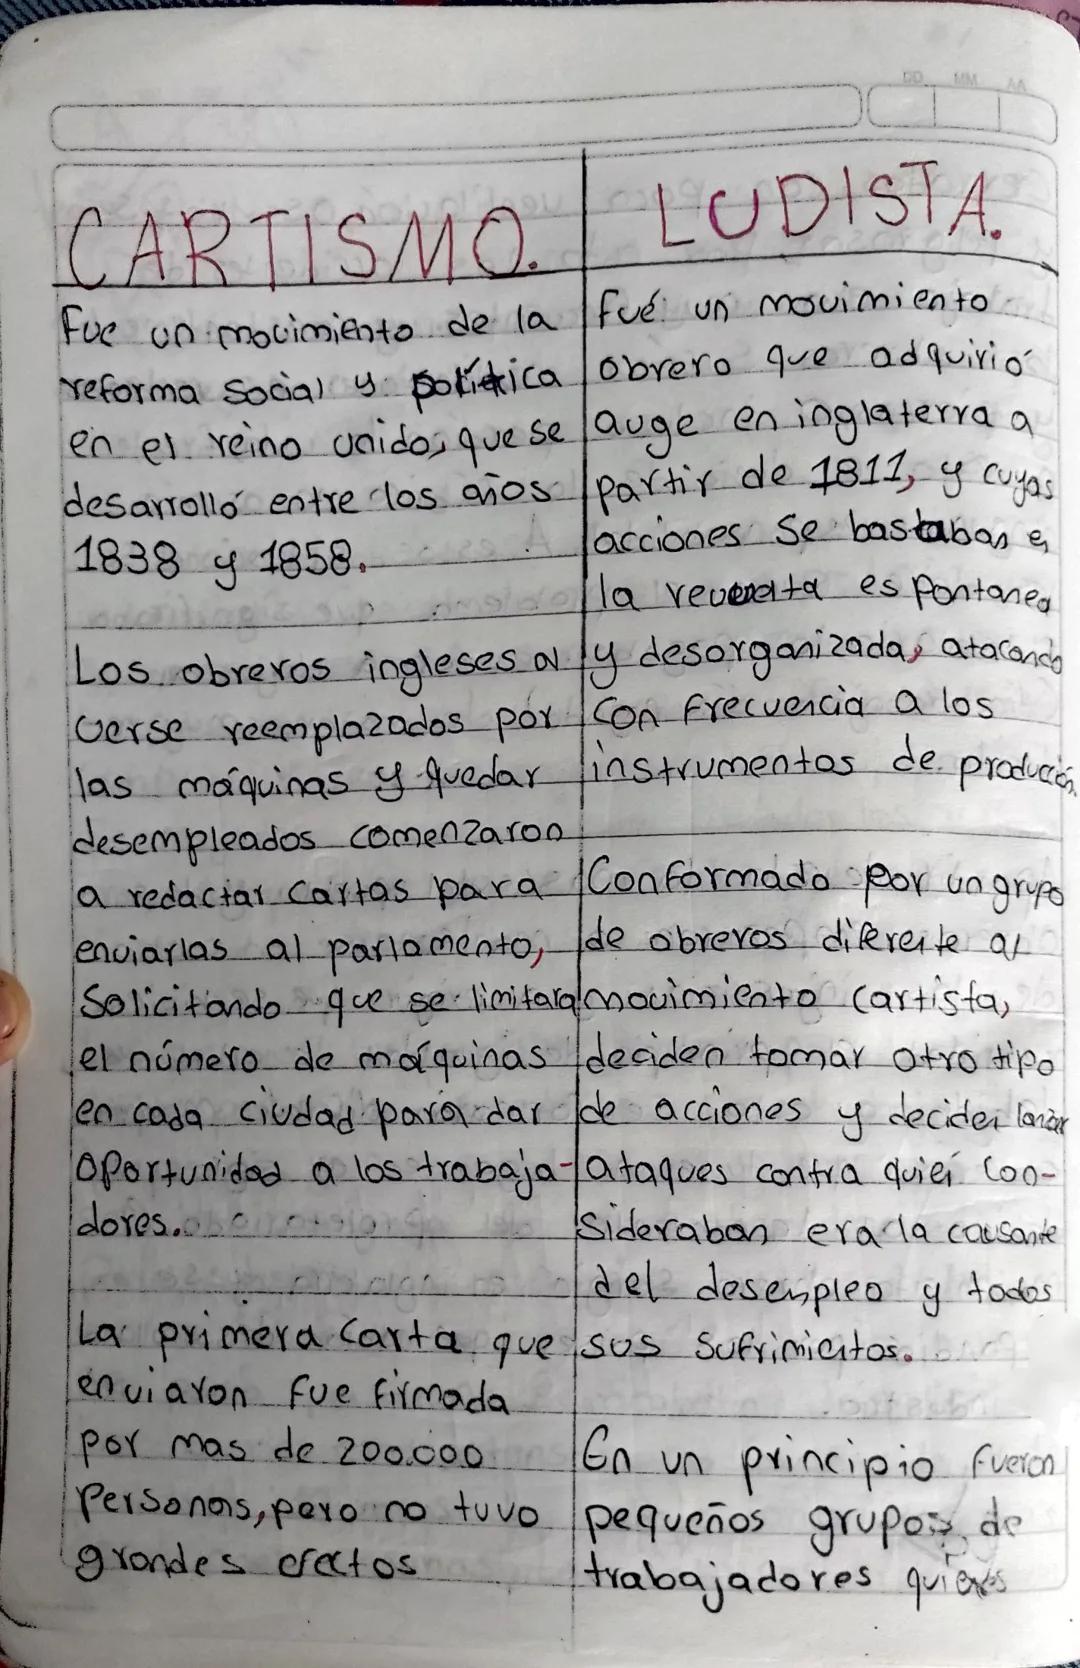 DD MM AA
CARTISMO.
Fue un movimiento de la
reforma social y política
en el reino unido, que se
desarrolló entre los años
1838 y 1858.
Los obreros ingleses al
verse reemplazados por
las máquinas y quedar
desempleados comenzaron
a redactar cartas para
enviarlas al parlamento,
Solicitando que se limitara
el número de máquinas
en cada ciudad para dar
oportunidad a los trabaja-
dores.
La primera carta que
enviaron fue firmada
por mas de 200.000
Personas, pero no tuvo
grandes efectos
LUDISTA.
fué un movimiento
obrero que adquirió
auge en inglaterra a
partir de 1811, y cuyas
acciones se bastaban en
la revuelta es pontanea
y desorganizada, atacando
con frecuencia a los
instrumentos de producción.
Conformado por un grupo
de obreros diferente al
movimiento cartista,
deciden tomar otro tipo
de acciones y deciden lanzar
ataques contra quien con-
sideraban era la causante
del desempleo y todos
sus sufrimientos.
En un principio fueron
pequeños grupos de
trabajadores quienes